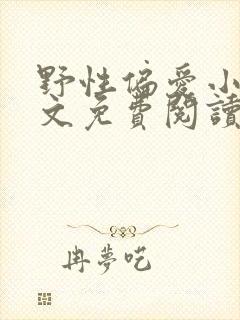 野性偏愛小
文免費閱讀
冉夢呓